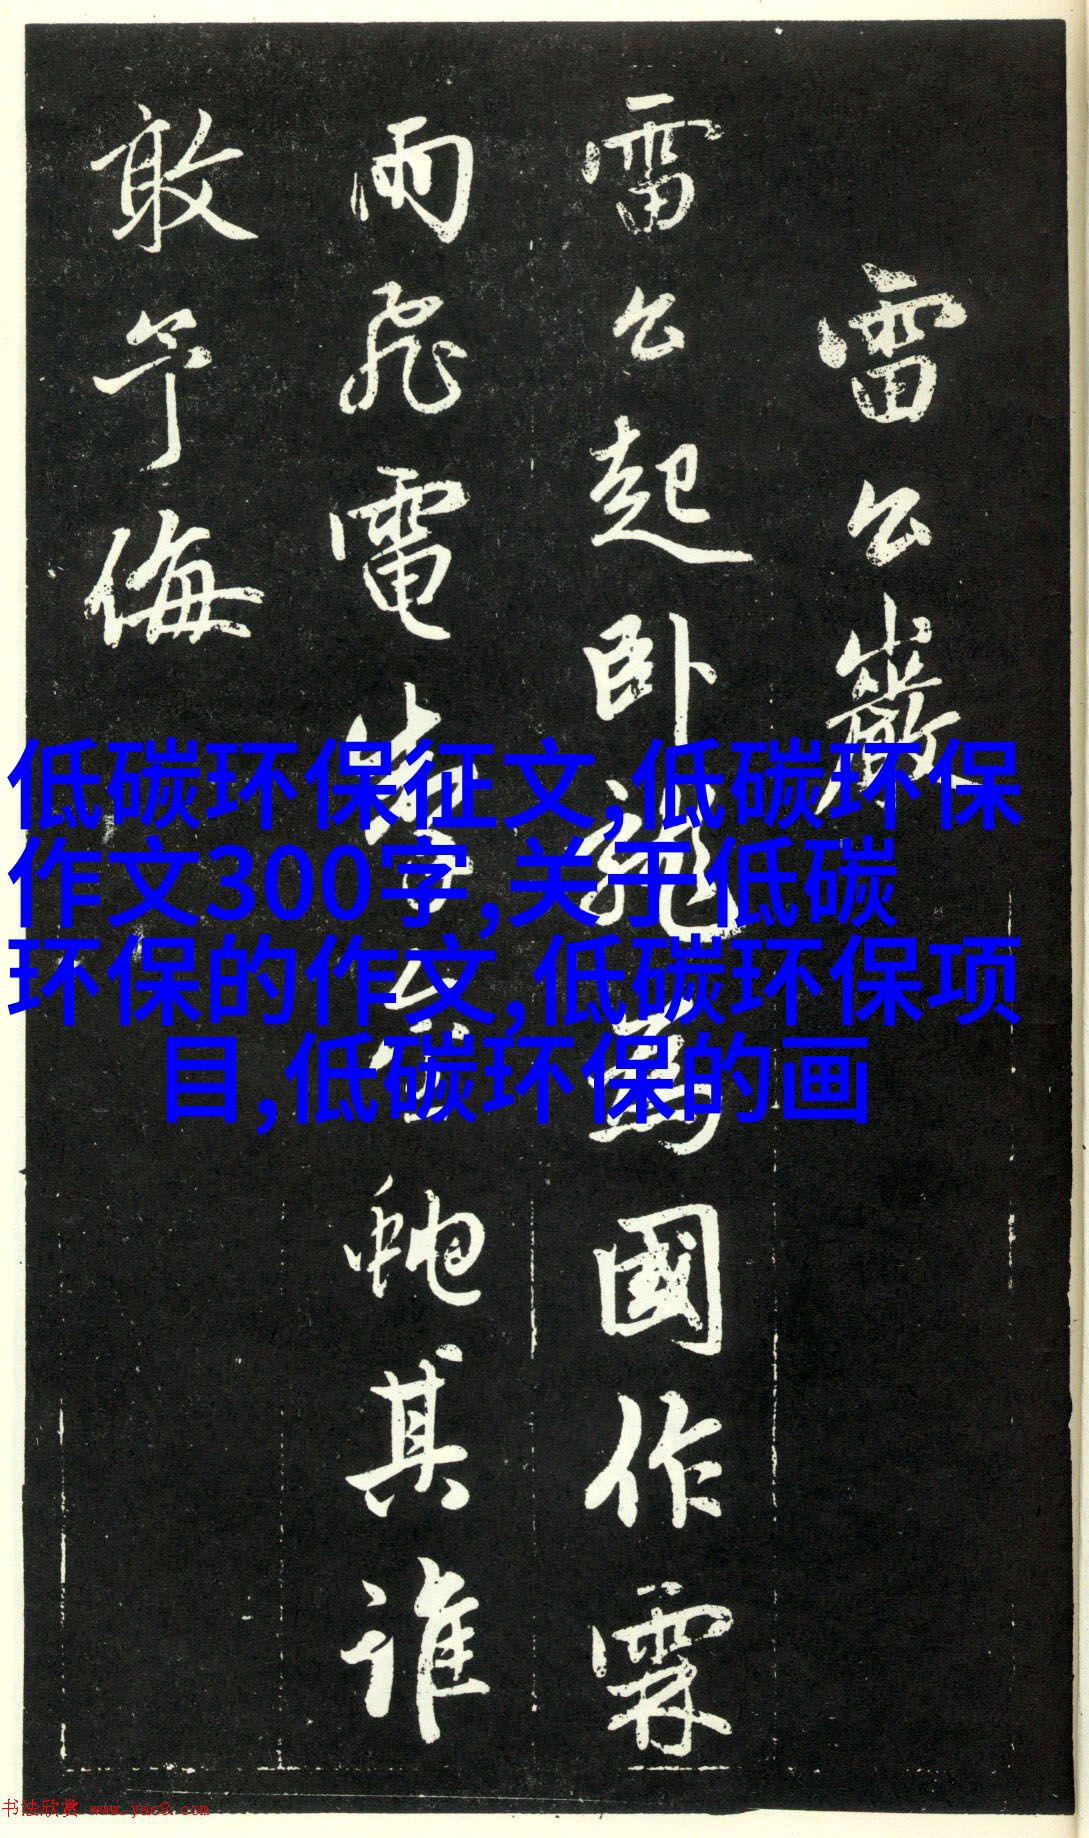 雷公巖
雷公起卧龍為國作霖
雨飛電
蛇其誰
敢乍侮
低碳环保征文,低碳环保
作文300字,关于低碳
环保的作文,低碳环保项
目,低碳环保的画
书法欣赏 www.yac8.com